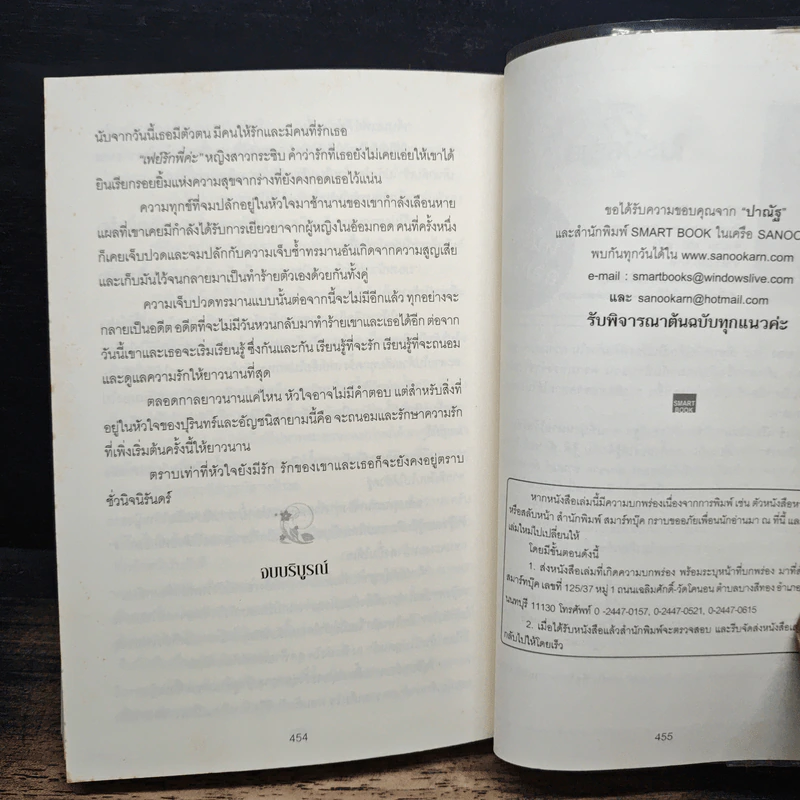 นับจากวันนี้เธอมีตัวตน มีคนให้รักและมีคนที่รักเธอ
"เฟย์รักพี่ค่ะ" หญิงสาวกระซิบ คำว่ารักที่เธอยังไม่เคยเอ่ยให้เขาได้
ยินเรียกรอยยิ้มแห่งความสุขจากร่างที่ยังคงกอดเธอไว้แน่น
ความทุกข์ที่จมปลักอยู่ในหัวใจมาช้านานของเขากำลังเลือนหาย
แผลที่เขาเคยมีกำลังได้รับการเยียวยาจากผู้หญิงในอ้อมกอด คนที่ครั้งหนึ่ง
ก็เคยเจ็บปวดและจมปลักกับความเจ็บช้ำทรมานอันเกิดจากความสูญเสีย
และเก็บมันไว้จนกลายมาเป็นทำร้ายตัวเองด้วยกันทั้งคู่
ความเจ็บปวดทรมานแบบนั้นต่อจากนี้จะไม่มีอีกแล้ว ทุกอย่างจะ
กลายเป็นอดีต อดีตที่จะไม่มีวันหวนกลับมาทำร้ายเขาและเธอได้อีก ต่อจาก
วันนี้เขาและเธอจะเริ่มเรียนรู้ซึ่งกันและกัน เรียนรู้ที่จะรัก เรียนรู้ที่จะถนอม
และดูแลความรักให้ยาวนานที่สุด
ตลอดกาลยาวนานแค่ไหน หัวใจอาจไม่มีคำตอบ แต่สำหรับสิ่งที่
อยู่ในหัวใจของปุรินทร์และอัญชนิสายามนี้คือ จะถนอมและรักษาความรัก
ที่เพิ่งเริ่มต้นครั้งนี้ให้ยาวนาน
ตราบเท่าที่หัวใจยังมีรัก รักของเขาและเธอก็จะยังคงอยู่ตราบ
ชั่วนิจนิรันดร์
จบบริบูรณ์
454
ขอได้รับความขอบคุณจาก "ปาณัฐ"
และสำนักพิมพ์ SMART BOOK ในเครือ SANOO
พบกันทุกวันได้ใน www.sanookarn.com
e-mail : smartbooks@windowslive.com
และ sanookarn@hotmail.com
รับพิจารณาต้นฉบับทุกแนวค่ะ
SMART
BOOK
หากหนังสือเล่มนี้มีความบกพร่องเนื่องจากการพิมพ์ เช่น ตัวหนังสือ
หรือสลับหน้า สำนักพิมพ์ สมาร์ทบุ๊ค กราบขออภัยเพื่อนนักอ่านมา ณ ที่นี้
เล่มใหม่ไปเปลี่ยนให้
โดยมีขั้นตอนดังนี้
1. ส่งหนังสือเล่มที่เกิดความบกพร่อง พร้อมระบุหน้าที่บกพร่อง มาที่
สมาร์ทบุ๊ค เลขที่ 125/37 หมู่ 1 ถนนเฉลิมศักดิ์-วัดโคนอน ตำบลบางสีทอง อำเภอ
นนทบุรี 11130 โทรศัพท์ 0 -2447-0157, 0-2447-0521, 0-2447-0615
2. เมื่อได้รับหนังสือแล้วสำนักพิมพ์จะตรวจสอบ และรีบจัดส่งหนังสือ
กลับไปให้โดยเร็ว
455